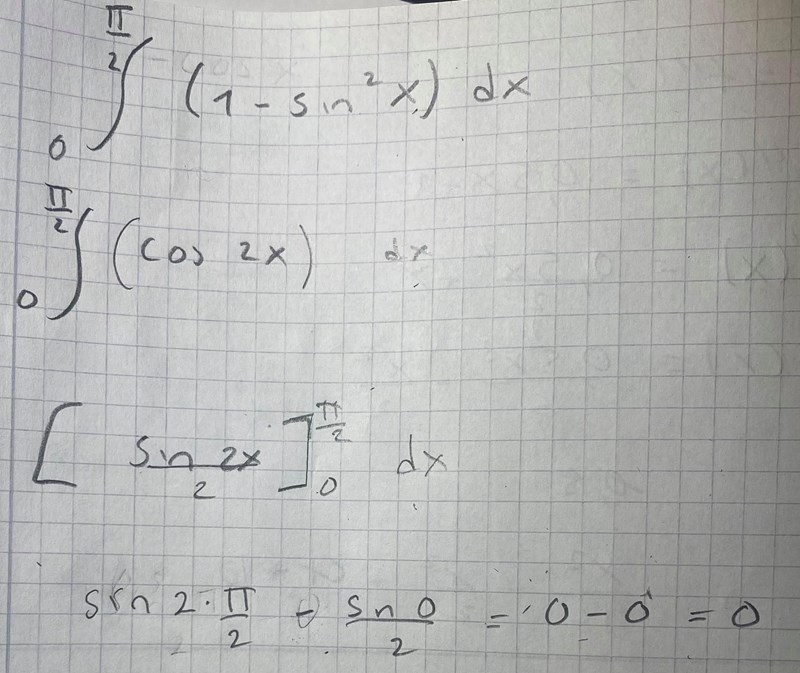 ∫₀^(π/2) (1 - sin² x) dx
∫₀^(π/2) (cos 2x) dx
[ (sin 2x)/2 ]₀^(π/2) dx
sin 2 · π/2 - (sin 0)/2 = 0 - 0 = 0